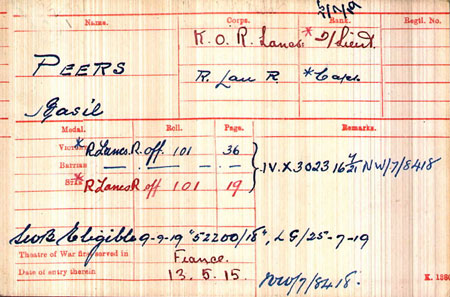 Name. Corps. Rank. Regtl. No.
K.O.R. Lancs. * 2/Lieut.
PEERS R. Lan R. * Capt.
Basil
Medal. Roll. Page. Remarks.
* Victory R Lancs. R. off 101 36
British — — — — IV.X.3023 NW/7/8418
* Star R Lancs R off 101 19
SWB Eligible 9-9-19 "52200/18", LG/25-7-19
Theatre of War first served in France.
Date of entry therein 13.5.15. NW/7/8418.
K. 1380